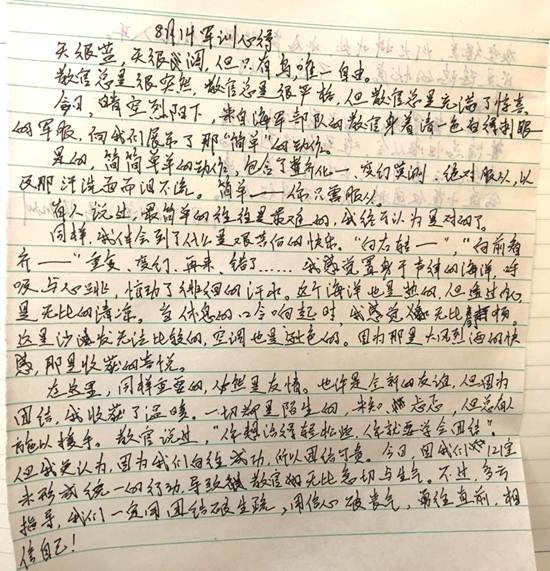 8月14军训心得
天很蓝，天很辽阔，但只有鸟唯一自由。
教官总是很突然，教官总是很严格，但教官总是充满了惊喜。
今日，晴空烈阳下，来自海军部队的教官身着清一色白得刺眼
的军服，向我们展示了那“简单”的动作。
是的，简简单单的动作，包含了整齐化一、变幻莫测、绝对服从，以
及那汗流而泪不流。简单——你只需服从。
有人说过，最简单的往往是最难的，我终于认为是对的了。
同样，我体会到了什么是艰苦的快乐。“向左转——”，“向前看
齐——”重复、变幻、再来、错了……我感觉置身于声律的海洋，呼
吸与心跳，惊动了徘徊的汗水。这个海洋也是热的，但透过心
是无比的清凉。当休息的口令响起时，我感觉无比舒畅。
这是沙发无法比较的，空调也是逊色的。因为那是大风到酒的快
感，那是收获的喜悦。
在这里，同样重要的，依然是友情。也许是全新的友谊，但因为
团结，我收获了温暖。一切都是陌生的，未知、忐忑，但总有人
施以援手。教官说过，“你想活得轻松些，你就要学会团结”。
但我更认为，因为我们向往成功，所以团结可贵。今日，因我们121室
未形成统一的行动，导致教官的无比急切与生气。不过，多亏
指导，我们一定用团结破生疏，用信心破丧气，勇往直前，相
信自己！